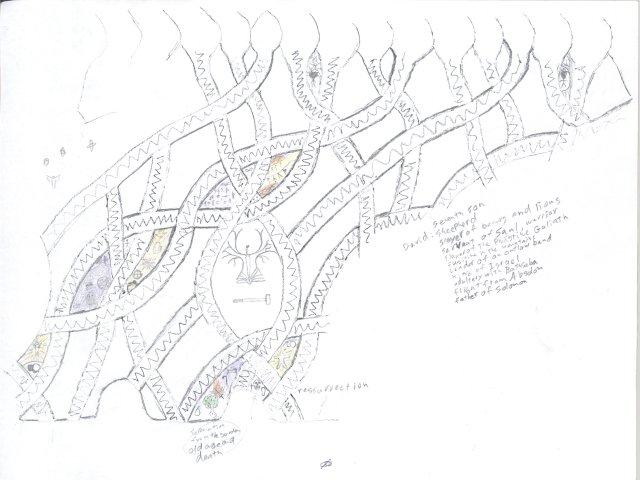 seventh son
David - sheepherd
slayer of bears and lions
servant of Saul warrior
Goliath
leader of an outlaw band
king of Israel
adultery with
flight from Abadon
father of Solomon
ressurection
from the garden
old age and
death